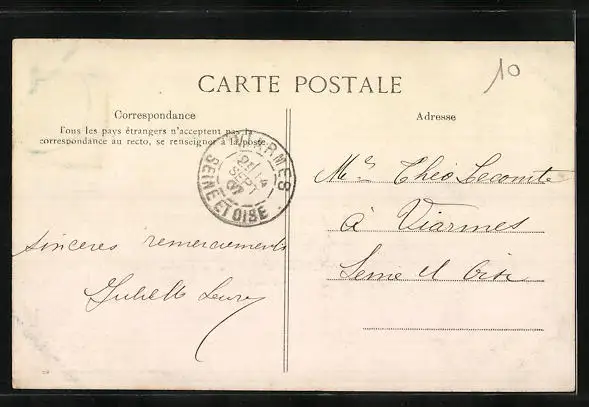 10
CARTE POSTALE
Correspondance
Tous les pays étrangers n'acceptent pas la
correspondance au recto, se renseigner à la poste
Adresse
VIARMES
14
SEPT
07
SEINE ET OISE
Théo Lecomte
à Viarmes
Seine et Oise
sincères remerciements
Juliette